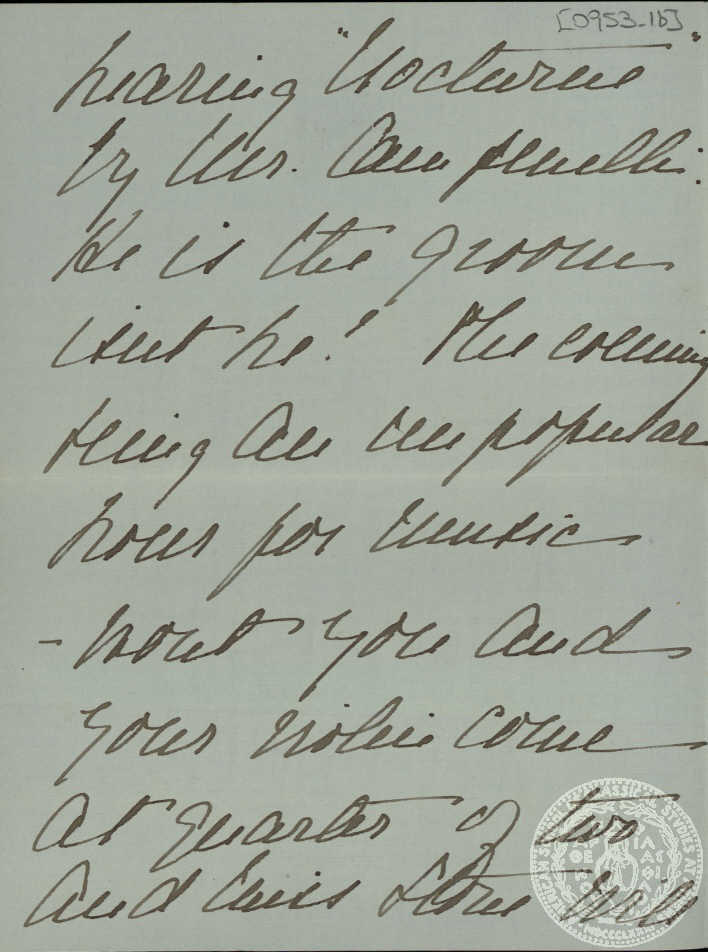 [0953-1b]
hearing "Nocturne"
by Mr. Campanelli.
He is the groom
isnt he? The evening
being an unpopular
hour for music
- wont you and
your violin come
at quarter of two
and Miss Stone will